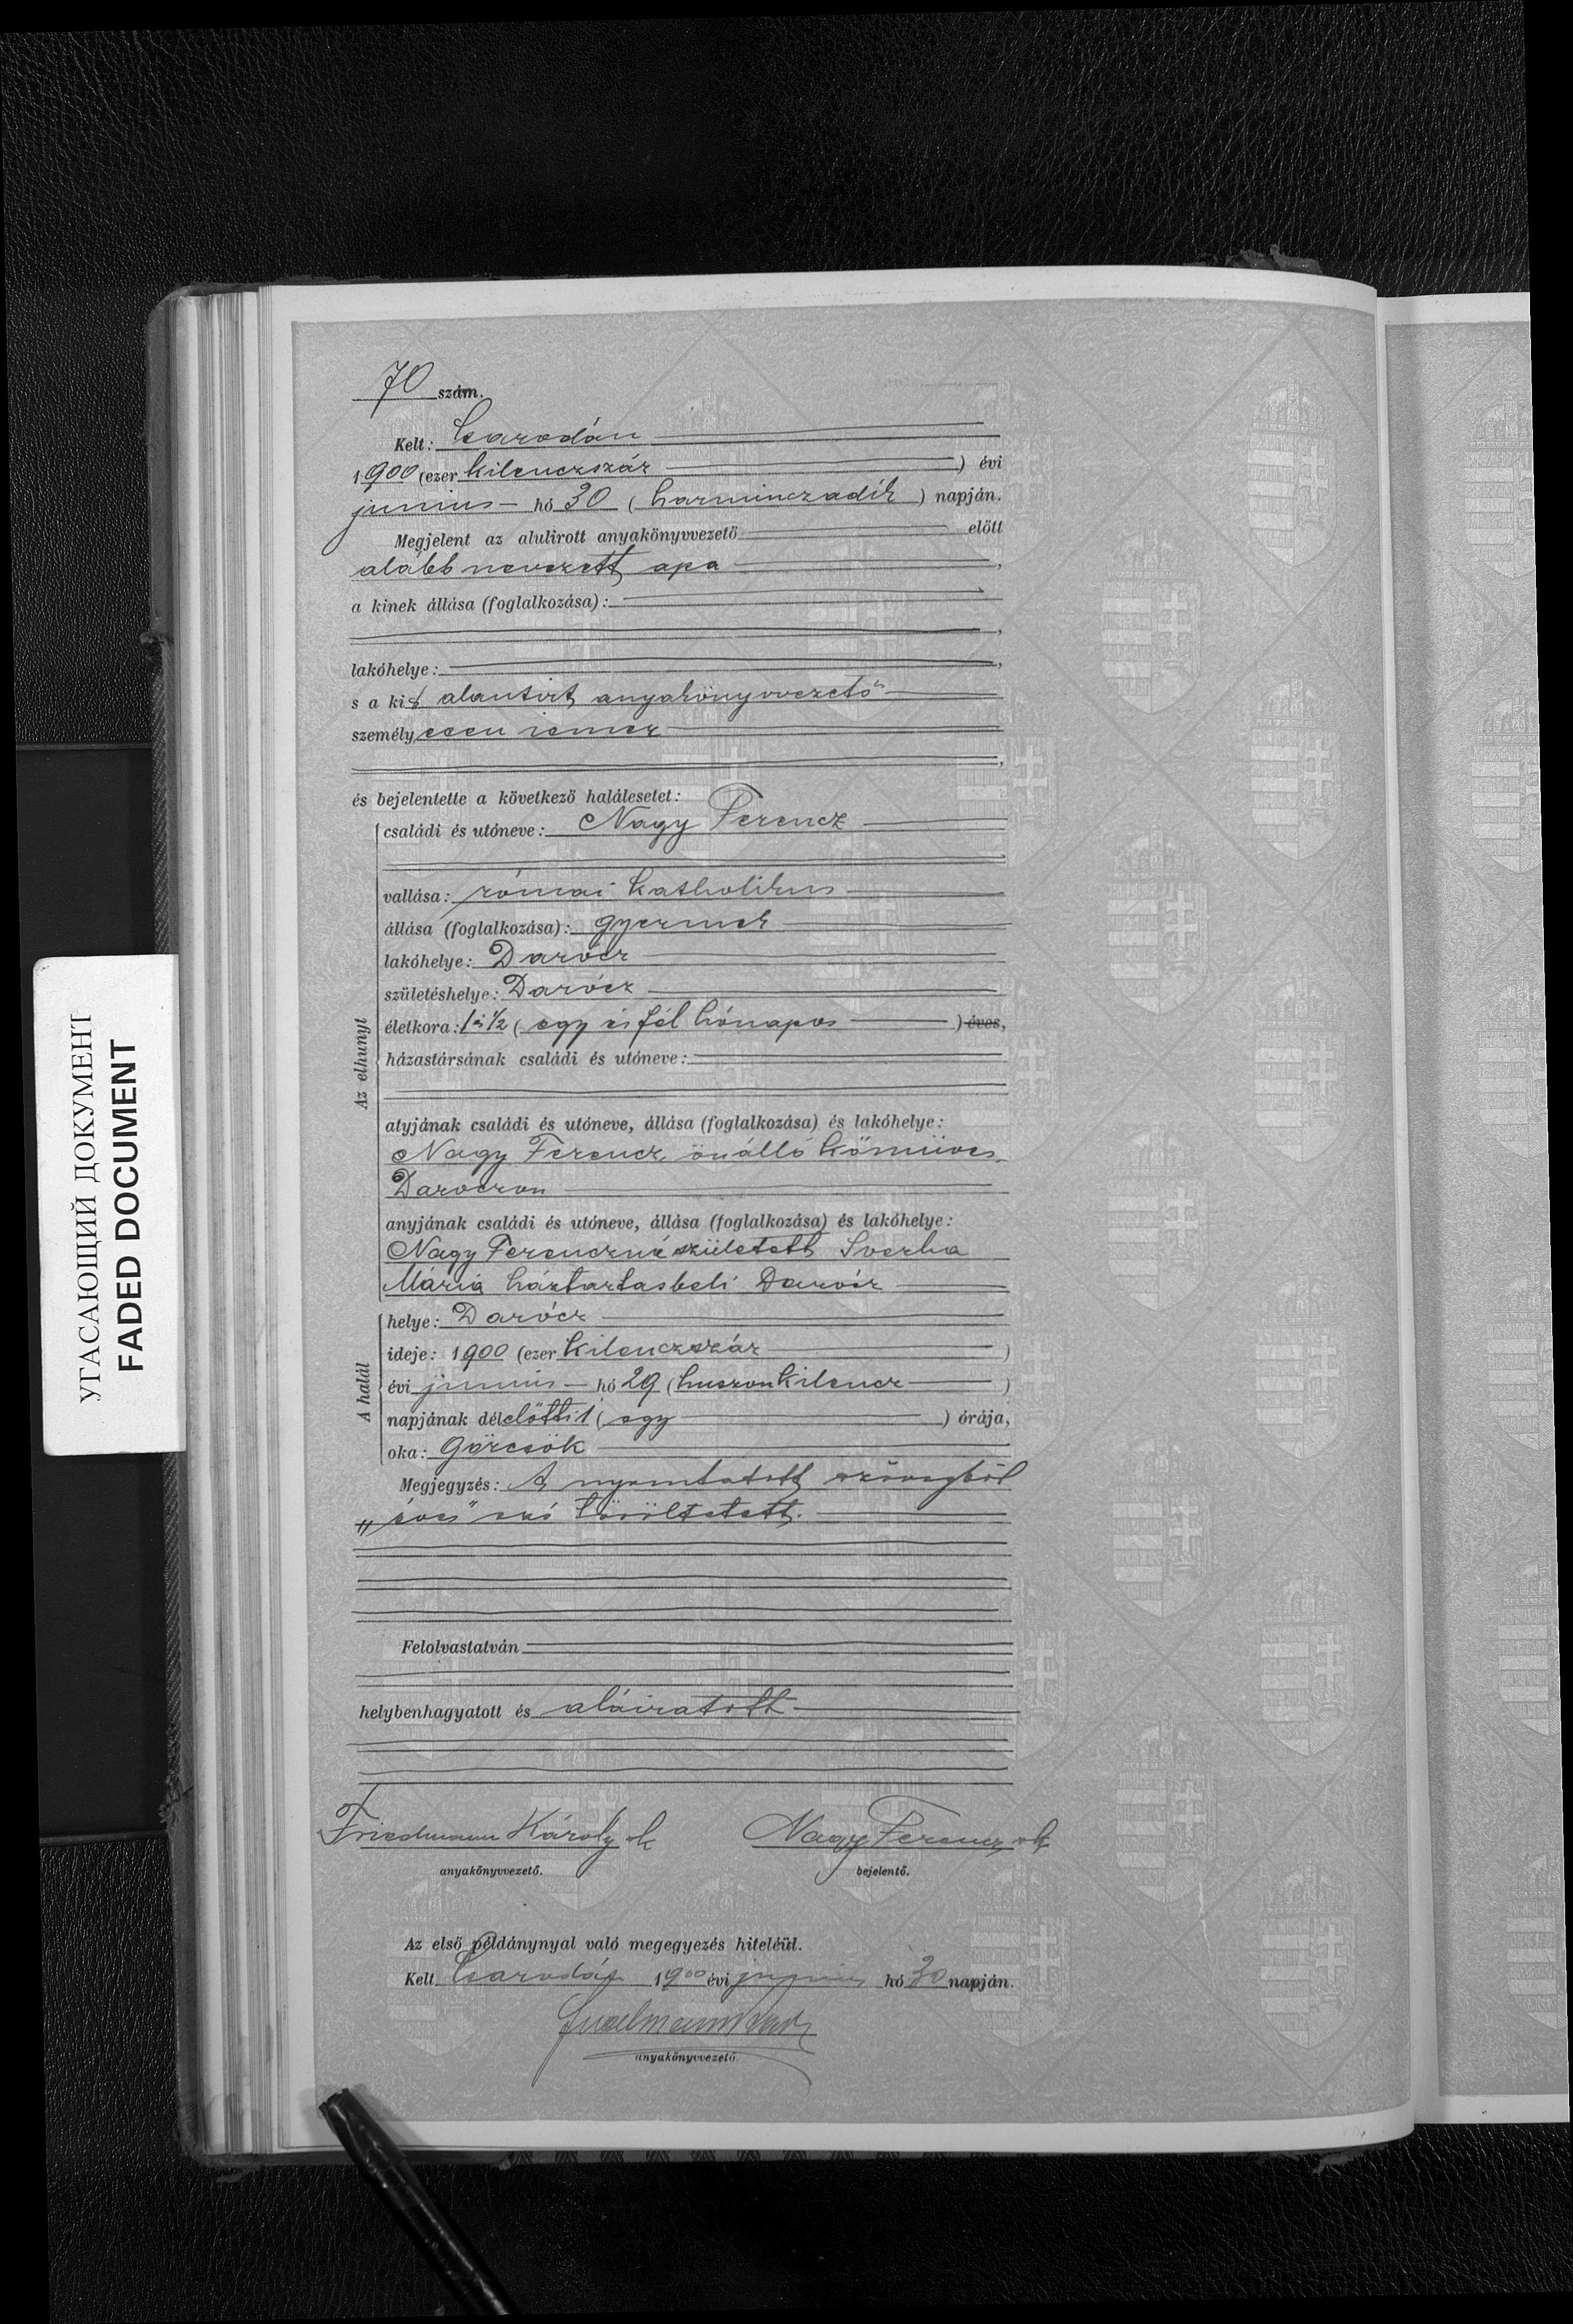 70 szám.
Kelt: Csarodán
1900 (ezer kilenczszáz ) évi
junius hó 30 ( harminczadik ) napján.
Megjelent az alulirott anyakönyvvezető előtt
alább nevezett apa ,
a kinek állása (foglalkozása):
,
lakóhelye: ,
s a kit alantirt anyakönyvvezető
személyesen ismer
,
és bejelentette a következő halálesetet:
Az elhunyt
családi és utóneve: Nagy Ferencz
vallása: római katholikus
állása (foglalkozása): gyermek
lakóhelye: Darócz
születéshelye: Darócz
életkora: 1 és 1/2 ( egy és fél hónapos ) éves,
házastársának családi és utóneve:
atyjának családi és utóneve, állása (foglalkozása) és lakóhelye:
Nagy Ferencz, önálló kőmüves
Daróczon
anyjának családi és utóneve, állása (foglalkozása) és lakóhelye:
Nagy Ferenczné született
Mária háztartasbeli Darócz
A halál
helye: Darócz
ideje: 1900 (ezer kilenczszáz )
évi junius hó 29 ( huszonkilencz )
napjának délelőtti 1 ( egy ) órája,
oka: Görcsök
Megjegyzés: A nyomtatott szövegből
„éves" szó töröltetett.
Felolvastatván
helybenhagyatott és aláiratott
Friedmann Károly sk Nagy Ferencz sk
anyakönyvvezető. bejelentő.
Az első példánynyal való megegyezés hiteléül.
Kelt Csarodán 1900 évi junius hó 30 napján.
anyakönyvvezető.
УГАСАЮЩИЙ ДОКУМЕНТ
FADED DOCUMENT